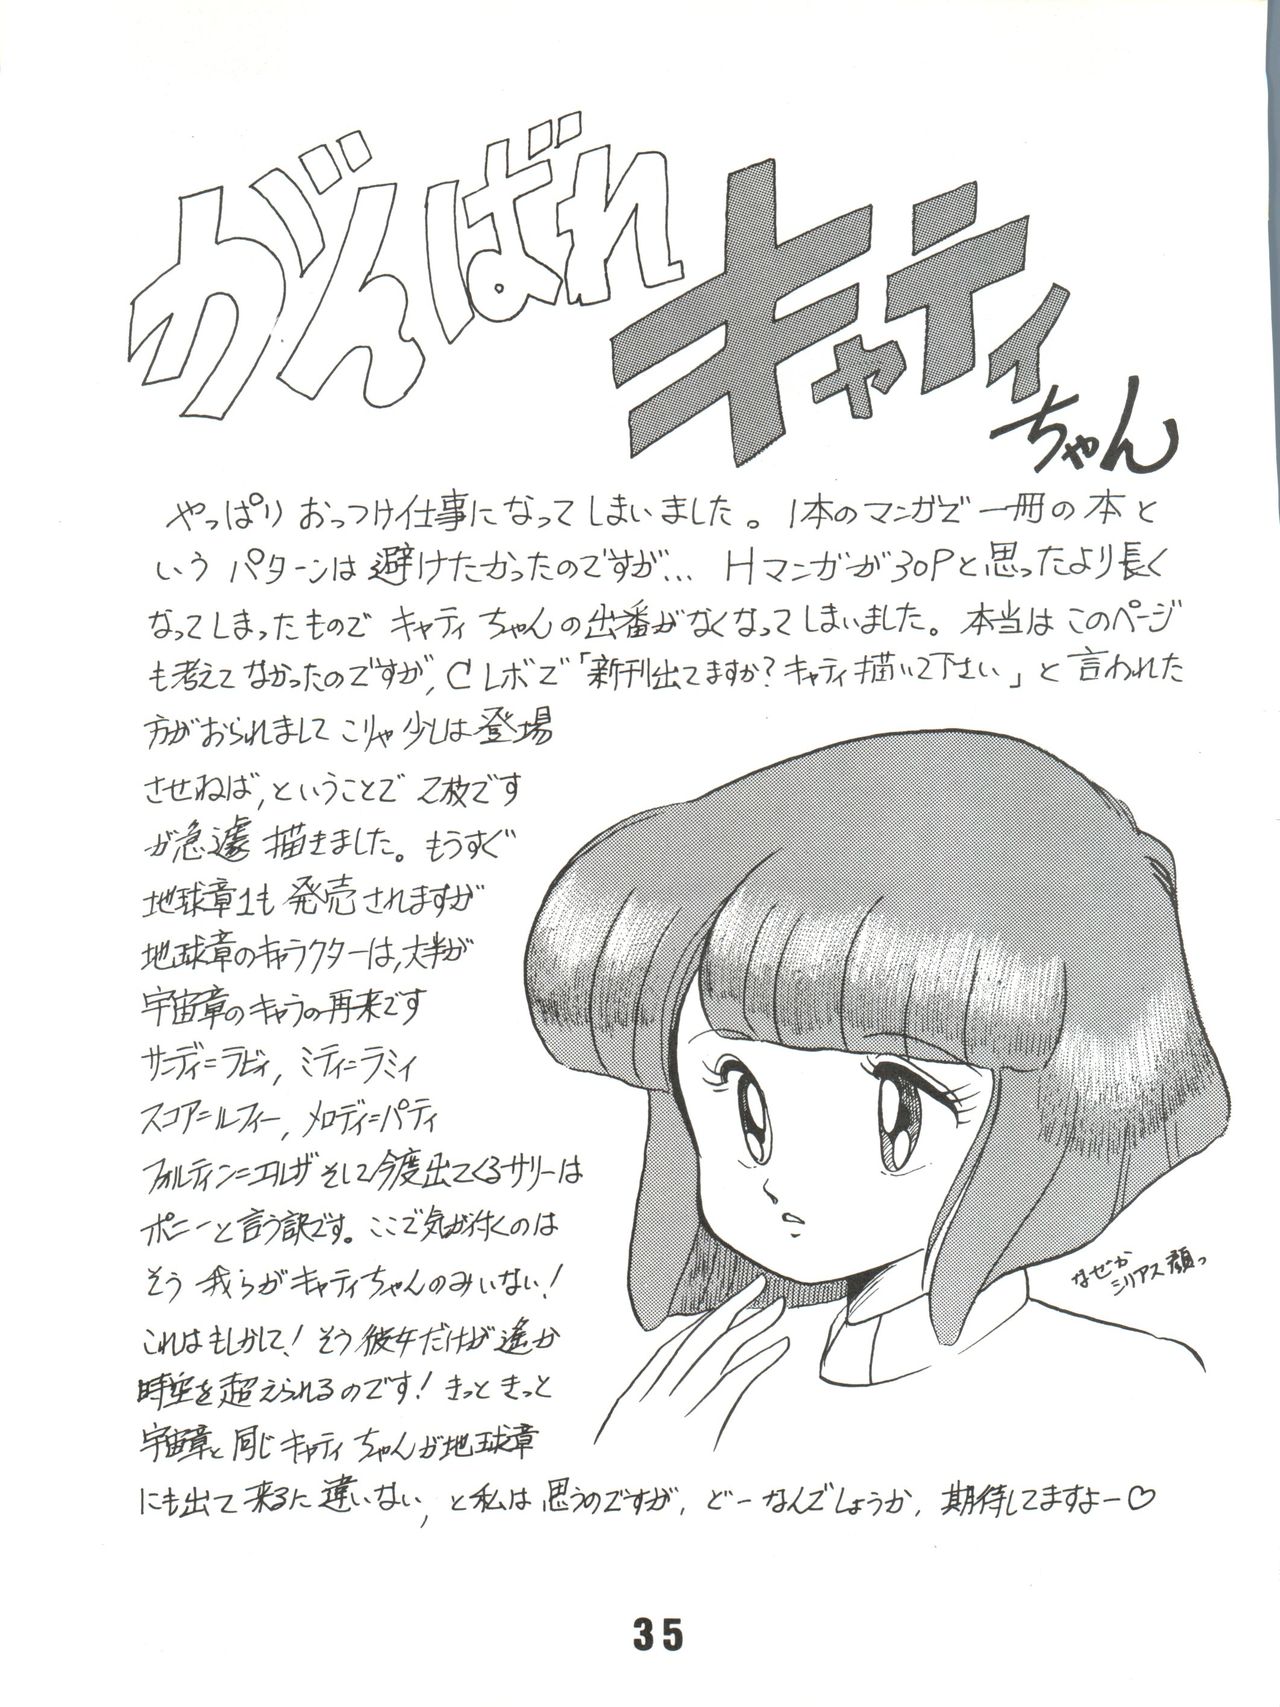 がんばれ
キャティ
ちゃん
やっぱりおっつけ仕事になってしまいました。1本のマンガで一冊の本と
いうパターンは避けたかったのですが… Hマンガが30Pと思ったより長く
なってしまったものでキャティちゃんの出番がなくなってしまいました。本当はこのページ
も考えてなかったのですが,CLボで「新刊出てますか?キャティ描いて下さい」と言われた
方がおられましてこりゃ少しは登場
させねば,ということで2枚です
が急遽描きました。もうすぐ
地球章1も発売されますが
地球章のキャラクターは,大判が
宇宙章のキャラの再来です
サーディ=ラビィ,ミティ=ラミィ
スコア=ルフィー,メロディ=パティ
フォルティン=エルザそして今度出てくるサリーは
ポニーと言う訳です。ここで気が付くのは
そう我らがキャティちゃんのみいない!
これはもしかして!そう彼女だけが遙か
時空を超えられるのです!きっときっと
宇宙章と同じキャティちゃんが地球章
にも出て来るに違いない,と私は思うのですが,どーなんでしょうか,期待してますよー♡
なぜか
シリアス顔っ
35